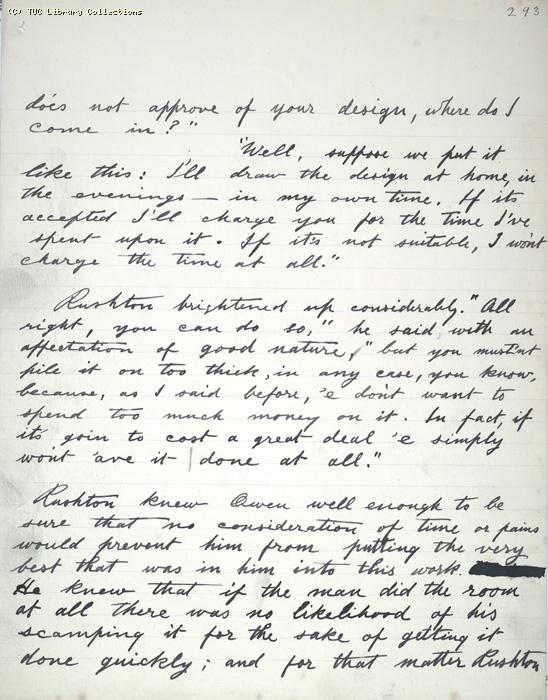 (C) TUC Library Collections
293
does not approve of your design, where do I
come in?"
"Well, suppose we put it
like this: I'll draw the design at home, in
the evenings — in my own time. If its
accepted I'll charge you for the time I've
spent upon it. If it's not suitable, I won't
charge the time at all."
Rushton brightened up considerably. "All
right, you can do so," he said with an
affectation of good nature, "but you must'nt
pile it on too thick, in any case, you know,
because, as I said before, 'e don't want to
spend too much money on it. In fact, if
it's goin to cost a great deal 'e simply
won't 'ave it done at all."
Rushton knew Owen well enough to be
sure that no consideration of time or pains
would prevent him from putting the very
best that was in him into this work.
He knew that if the man did the room
at all there was no likelihood of his
scamping it for the sake of getting it
done quickly; and for that matter Rushton